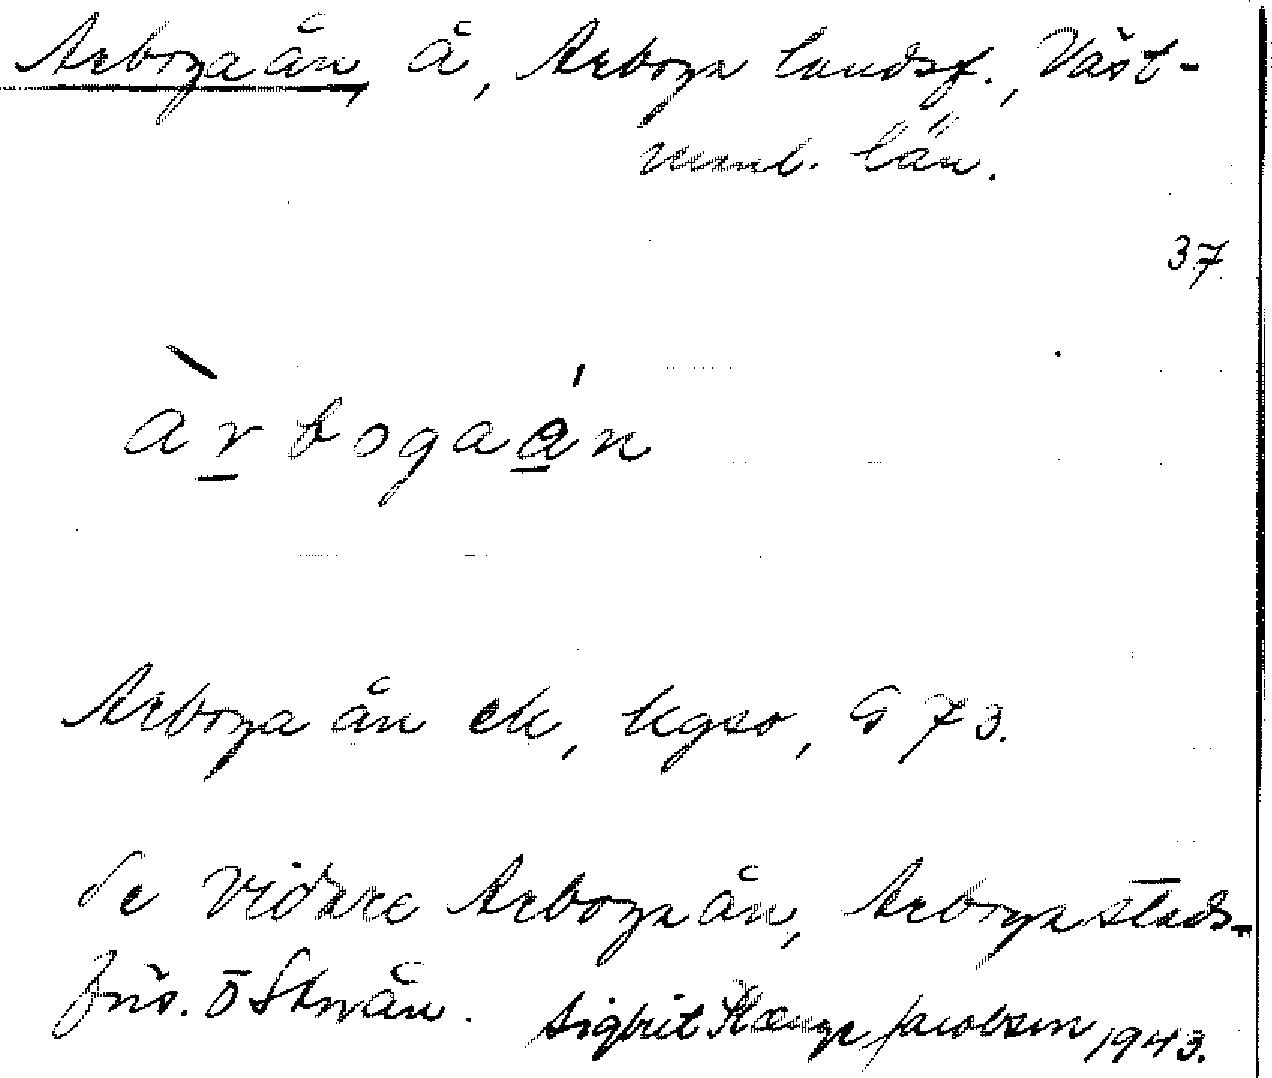 Arbogaån, å, Arboga landsf., Väst-
manl. län.
37
àrbogaán
Arboga ån ek, kgso, G 73.
Se vidare Arboga ån, Arboga stads-
förs. o Storån. Sigbrit Plænge Jacobson 1943.